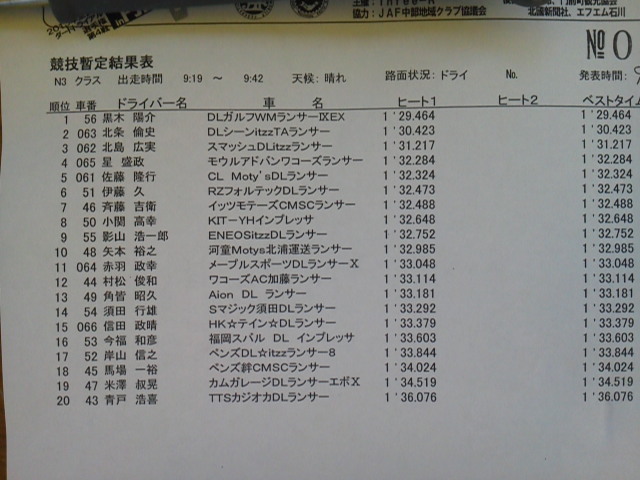 協力：JAF中部地域クラブ協議会
北國新聞社、エフエム石川
№0
競技暫定結果表
N3 クラス 出走時間 9:19 ～ 9:42 天候：晴れ 路面状況：ドライ No. 発表時間：
順位 車番 ドライバー名 車 名 ヒート1 ヒート2 ベストタイム
1 56 黒木 陽介 DLガルフWMランサーⅨEX 1'29.464 1'29.464
2 063 北条 倫史 DLシーンitzzTAランサー 1'30.423 1'30.423
3 062 北島 広実 スマッシュDLitzzランサー 1'31.217 1'31.217
4 065 星 盛政 モウルアドバンワコーズランサー 1'32.284 1'32.284
5 061 佐藤 隆行 CL Moty'sDLランサー 1'32.324 1'32.324
6 51 伊藤 久 RZフォルテックDLランサー 1'32.473 1'32.473
7 46 斉藤 吉衛 イッツモテーズCMSCランサー 1'32.488 1'32.488
8 50 小関 高幸 KIT－YHインプレッサ 1'32.648 1'32.648
9 55 影山 浩一郎 ENEOSitzzDLランサー 1'32.752 1'32.752
10 48 矢本 裕之 河童Motys北浦運送ランサー 1'32.985 1'32.985
11 064 赤羽 政幸 メープルスポーツDLランサーX 1'33.048 1'33.048
12 44 村松 俊和 ワコーズAC加藤ランサー 1'33.114 1'33.114
13 49 角皆 昭久 Aion DL ランサー 1'33.181 1'33.181
14 54 須田 行雄 Sマジック須田DLランサー 1'33.292 1'33.292
15 066 信田 政晴 HK☆テイン☆DLランサー 1'33.379 1'33.379
16 53 今福 和彦 福岡スバル DL インプレッサ 1'33.603 1'33.603
17 52 岸山 信之 ベンズDL☆itzzランサー8 1'33.844 1'33.844
18 45 馬場 一裕 ベンズ絆CMSCランサー 1'34.024 1'34.024
19 47 米澤 叔晃 カムガレージDLランサーエボX 1'34.519 1'34.519
20 43 青戸 浩喜 TTSカジオカDLランサー 1'36.076 1'36.076